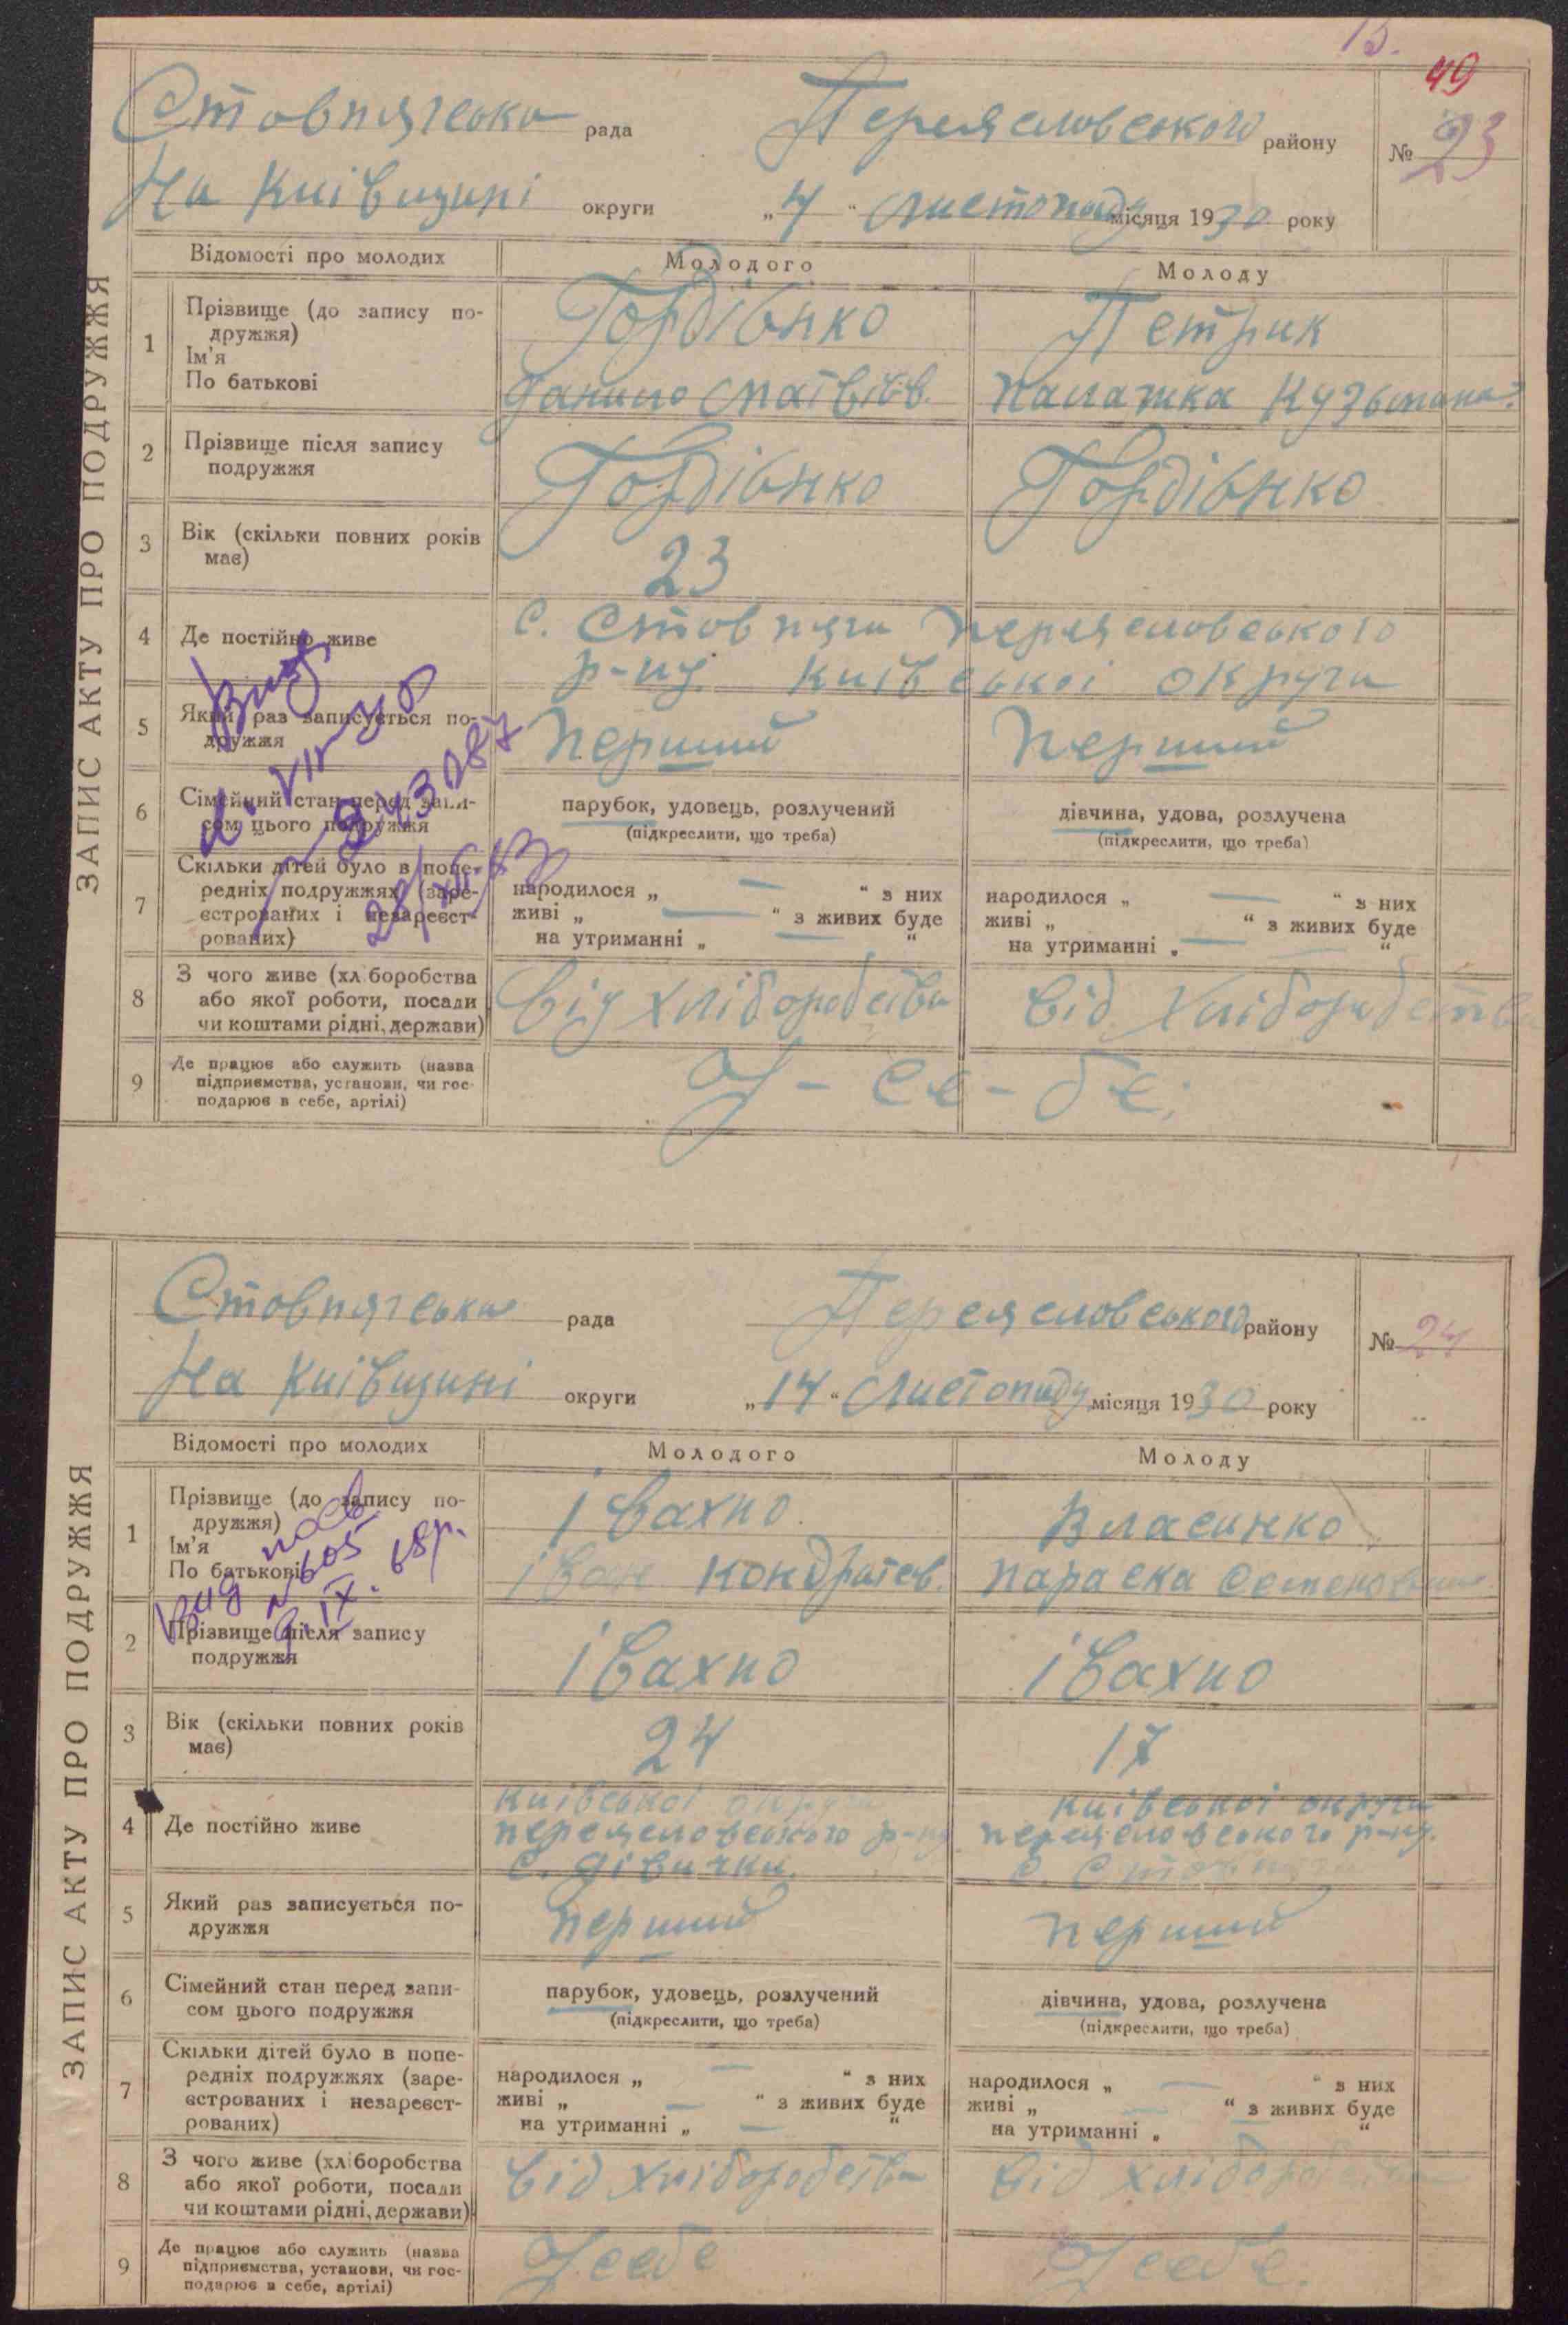 49
Стовпязська рада Переяславського району № 23
На Київщині округи „4“ листопаду місяця 1930 року
ЗАПИС АКТУ ПРО ПОДРУЖЖЯ
Відомості про молодих Молодого Молоду
1 Прізвище (до запису по-
дружжя) Гордієнко Петрик
Ім'я
По батькові Данило Матвіїв. Палажка Кузьмина
2 Прізвище після запису
подружжя Гордієнко Гордієнко
3 Вік (скільки повних років
має) 23
4 Де постійно живе с. Стовпяги Переяславського
р-ну Київської округи
5 Який раз записується по-
дружжя перший перший
6 Сімейний стан перед запи-
сом цього подружжя
парубок, удовець, розлучений дівчина, удова, розлучена
(підкреслити, що треба) (підкреслити, що треба)
7 Скільки дітей було в попе-
редніх подружжях (заре-
єстрованих і незареєст-
рованих)
народилося „ — “ з них народилося „ — “ з них
живі „ — “ з живих буде живі „ “ з живих буде
на утриманні „ — “ на утриманні „ — “
8 З чого живе (хліборобства
або якої роботи, посади
чи коштами рідні, держави)
від хліборобства від хліборобства
9 Де працює або служить (назва
підприємства, установи, чи гос-
подарює в себе, артілі)
У-се-бе.
Стовпязська рада Переяславського району № 24
На Київщині округи „14“ листопаду місяця 1930 року
ЗАПИС АКТУ ПРО ПОДРУЖЖЯ
Відомості про молодих Молодого Молоду
1 Прізвище (до запису по-
дружжя) Івахно Власенко
Ім'я
По батькові Іван Кондратов. Параска Семеновна
2 Прізвище після запису
подружжя Івахно Івахно
3 Вік (скільки повних років
має) 24 17
4 Де постійно живе
Київської округи Київської округи
Переяславського р-ну Переяславського р-ну.
с. Дівички. с. Стовпяги
5 Який раз записується по-
дружжя перший перший
6 Сімейний стан перед запи-
сом цього подружжя
парубок, удовець, розлучений дівчина, удова, розлучена
(підкреслити, що треба) (підкреслити, що треба)
7 Скільки дітей було в попе-
редніх подружжях (заре-
єстрованих і незареєст-
рованих)
народилося „ — “ з них народилося „ — “ з них
живі „ — “ з живих буде живі „ — “ з живих буде
на утриманні „ — “ на утриманні „ “
8 З чого живе (хліборобства
або якої роботи, посади
чи коштами рідні, держави)
від хліборобства від хліборобства
9 Де працює або служить (назва
підприємства, установи, чи гос-
подарює в себе, артілі)
У себе У себе.